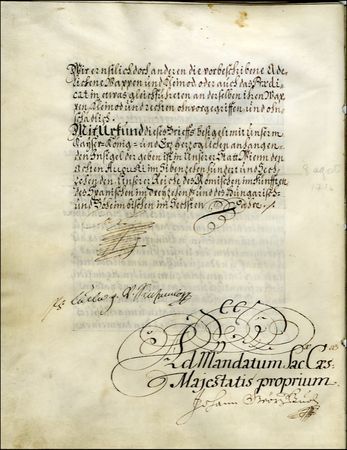 Wir ernstlich doch anderen die vorbeschribene Ade-
liche Wappen und Cleinod oder auch das Prædi-
cat in etwas gleichfuhreten an derselben ihren Wap-
pen Cleinod und rechten ohnvorgegriffen und ohn-
schädlich.
Mit Urkund dieses Brieffs besigelt mit unserm
Kayser- König- und Erzherzoglichen anhangen-
den Insigel der geben ist in Unserer Statt Wienn den
achten Augusti im Sibenzehen hundert und Sech-
zehen den Unserer Reiche des Römischen im fünfften
des Spanischen im dreyzehen und des Hungarisch-
und Böheimbischen im Sechsten
8 aug
1716
Ad Mandatum Sac. Cæs.
Majestatis proprium.
Johann